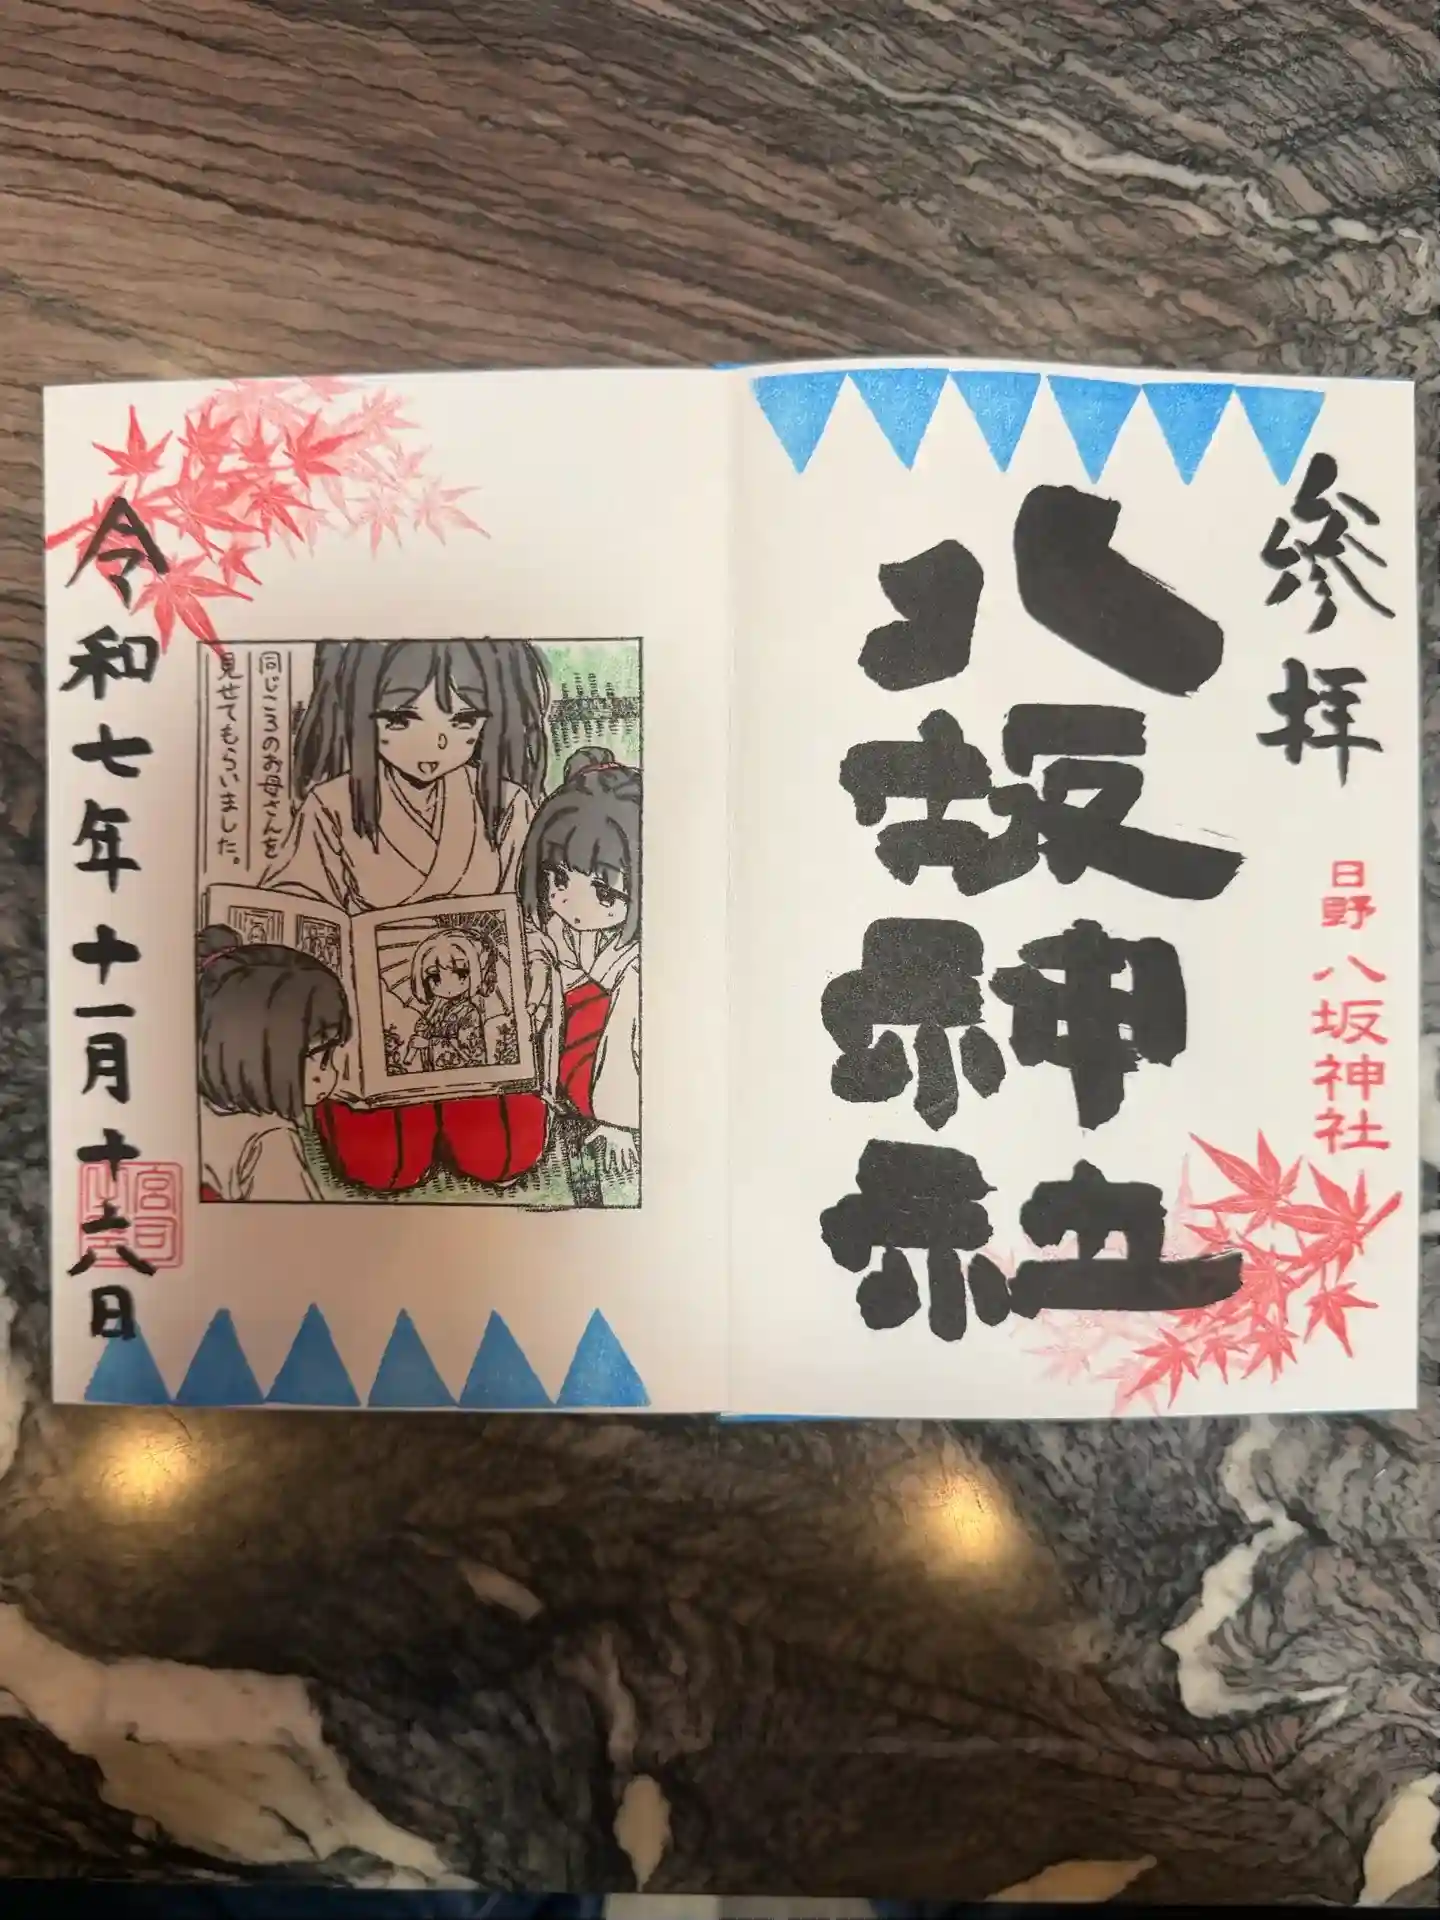 参拝
日野八坂神社
八坂神社
同じころのお母さんを
見せてもらいました。
令和七年十一月十六日
宮司